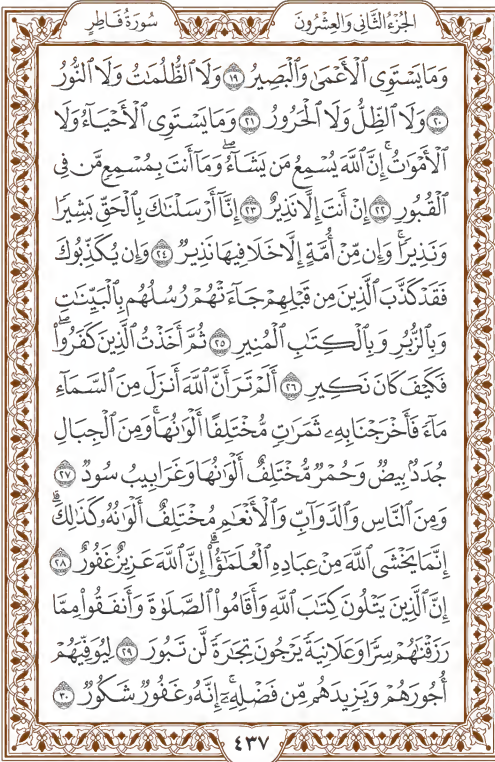 الجزء الثاني والعشرون سورة فاطر
وَمَا يَسْتَوِى ٱلْأَعْمَىٰ وَٱلْبَصِيرُ ١٩ وَلَا ٱلظُّلُمَٰتُ وَلَا ٱلنُّورُ
٢٠ وَلَا ٱلظِّلُّ وَلَا ٱلْحَرُورُ ٢١ وَمَا يَسْتَوِى ٱلْأَحْيَآءُ وَلَا
ٱلْأَمْوَٰتُ ۚ إِنَّ ٱللَّهَ يُسْمِعُ مَن يَشَآءُ ۖ وَمَآ أَنتَ بِمُسْمِعٍ مَّن فِى
ٱلْقُبُورِ ٢٢ إِنْ أَنتَ إِلَّا نَذِيرٌ ٢٣ إِنَّآ أَرْسَلْنَٰكَ بِٱلْحَقِّ بَشِيرًا
وَنَذِيرًا ۚ وَإِن مِّنْ أُمَّةٍ إِلَّا خَلَا فِيهَا نَذِيرٌ ٢٤ وَإِن يُكَذِّبُوكَ
فَقَدْ كَذَّبَ ٱلَّذِينَ مِن قَبْلِهِمْ جَآءَتْهُمْ رُسُلُهُم بِٱلْبَيِّنَٰتِ
وَبِٱلزُّبُرِ وَبِٱلْكِتَٰبِ ٱلْمُنِيرِ ٢٥ ثُمَّ أَخَذْتُ ٱلَّذِينَ كَفَرُوا۟ ۖ
فَكَيْفَ كَانَ نَكِيرِ ٢٦ أَلَمْ تَرَ أَنَّ ٱللَّهَ أَنزَلَ مِنَ ٱلسَّمَآءِ
مَآءً فَأَخْرَجْنَا بِهِۦ ثَمَرَٰتٍ مُّخْتَلِفًا أَلْوَٰنُهَا ۚ وَمِنَ ٱلْجِبَالِ
جُدَدٌۢ بِيضٌ وَحُمْرٌ مُّخْتَلِفٌ أَلْوَٰنُهَا وَغَرَابِيبُ سُودٌ ٢٧
وَمِنَ ٱلنَّاسِ وَٱلدَّوَآبِّ وَٱلْأَنْعَٰمِ مُخْتَلِفٌ أَلْوَٰنُهُۥ كَذَٰلِكَ ۗ
إِنَّمَا يَخْشَى ٱللَّهَ مِنْ عِبَادِهِ ٱلْعُلَمَٰٓؤُا۟ ۗ إِنَّ ٱللَّهَ عَزِيزٌ غَفُورٌ ٢٨
إِنَّ ٱلَّذِينَ يَتْلُونَ كِتَٰبَ ٱللَّهِ وَأَقَامُوا۟ ٱلصَّلَوٰةَ وَأَنفَقُوا۟ مِمَّا
رَزَقْنَٰهُمْ سِرًّا وَعَلَانِيَةً يَرْجُونَ تِجَٰرَةً لَّن تَبُورَ ٢٩ لِيُوَفِّيَهُمْ
أُجُورَهُمْ وَيَزِيدَهُم مِّن فَضْلِهِۦٓ ۚ إِنَّهُۥ غَفُورٌ شَكُورٌ ٣٠
٤٣٧